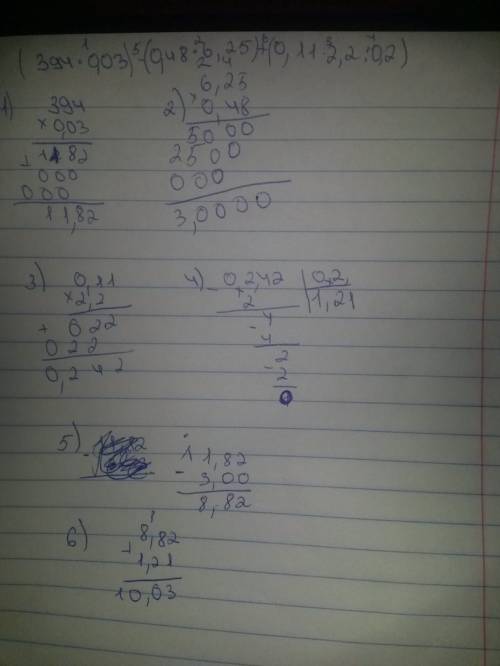 (394·0,03)-(0,48·6,25)+(0,11·2,2:0,2)
1) 394
×0,03
+ 1182
000
000
11,82
2) 6,25
×0,48
5000
2500
000
3,0000
3) 0,11
×2,2
+ 022
022
0,242
4) - 0,2,42 | 0,2,
2 | 1,21
- 4
4
- 2
2
0
5) - 11,82
3,00
8,82
6) + 8,82
1,21
10,03